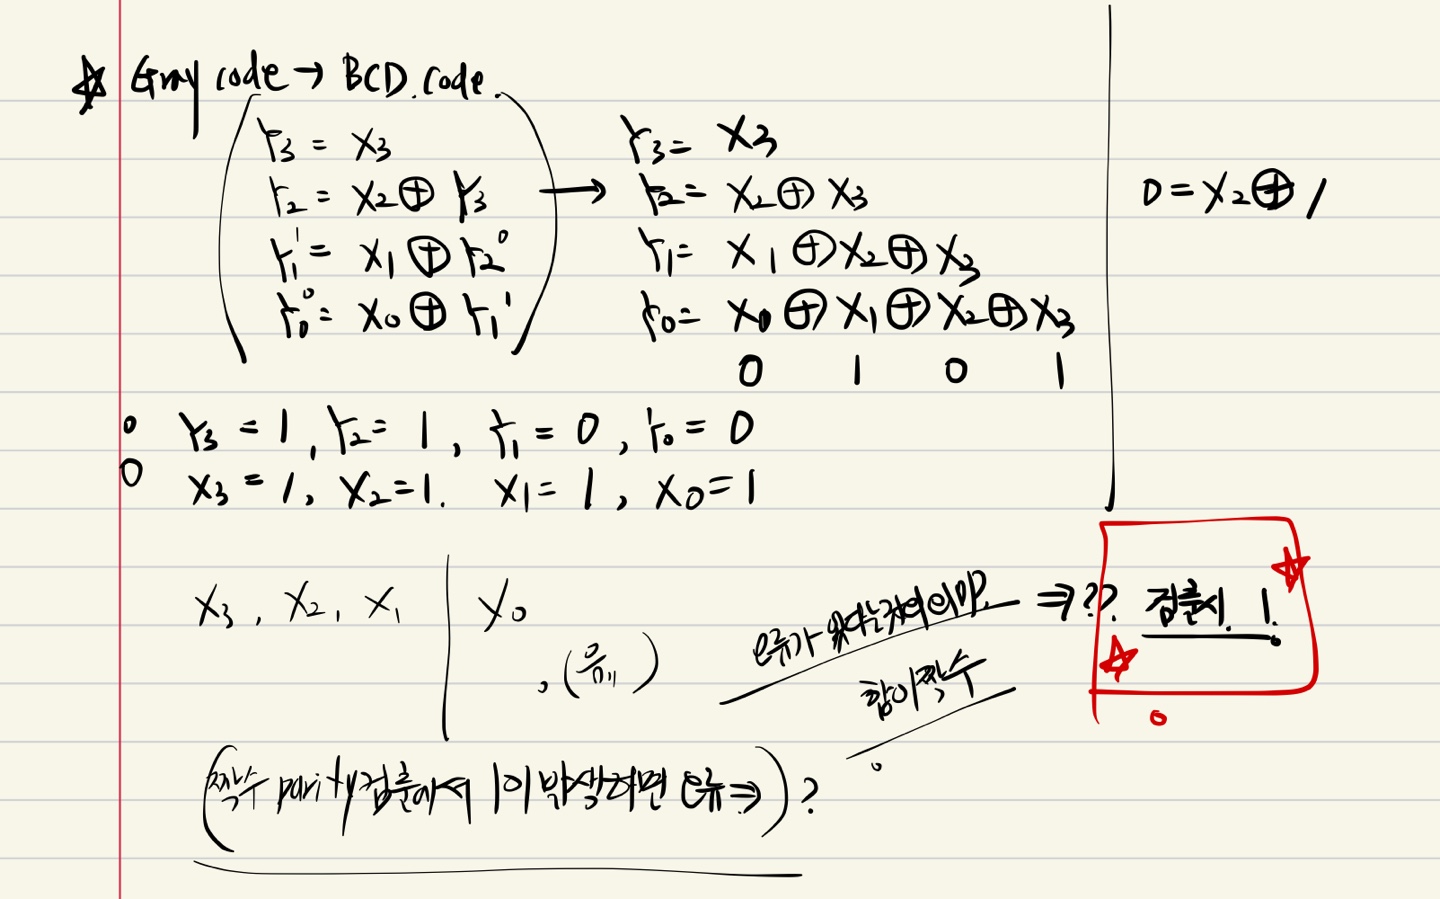 ☆ Gray code → BCD code.
Y3 = X3
Y2 = X2 ⊕ Y3
Y1' = X1 ⊕ Y2 0
Y0 0 = X0 ⊕ Y1'
→
Y3 = X3
Y2 = X2 ⊕ X3
Y1 = X1 ⊕ X2 ⊕ X3
Y0 = X0 ⊕ X1 ⊕ X2 ⊕ X3
0 1 0 1
0 = X2 ⊕ 1
0 Y3 = 1, Y2 = 1, Y1 = 0, Y0 = 0
0 X3 = 1, X2 = 1. X1 = 1, X0 = 1
X3, X2, X1 | X0
오류가 있다는것의 의미? ⇒??
검출시 1.
합이 짝수
(짝수 parity 검출에서 1이 발생하면 오류 ⇒)?